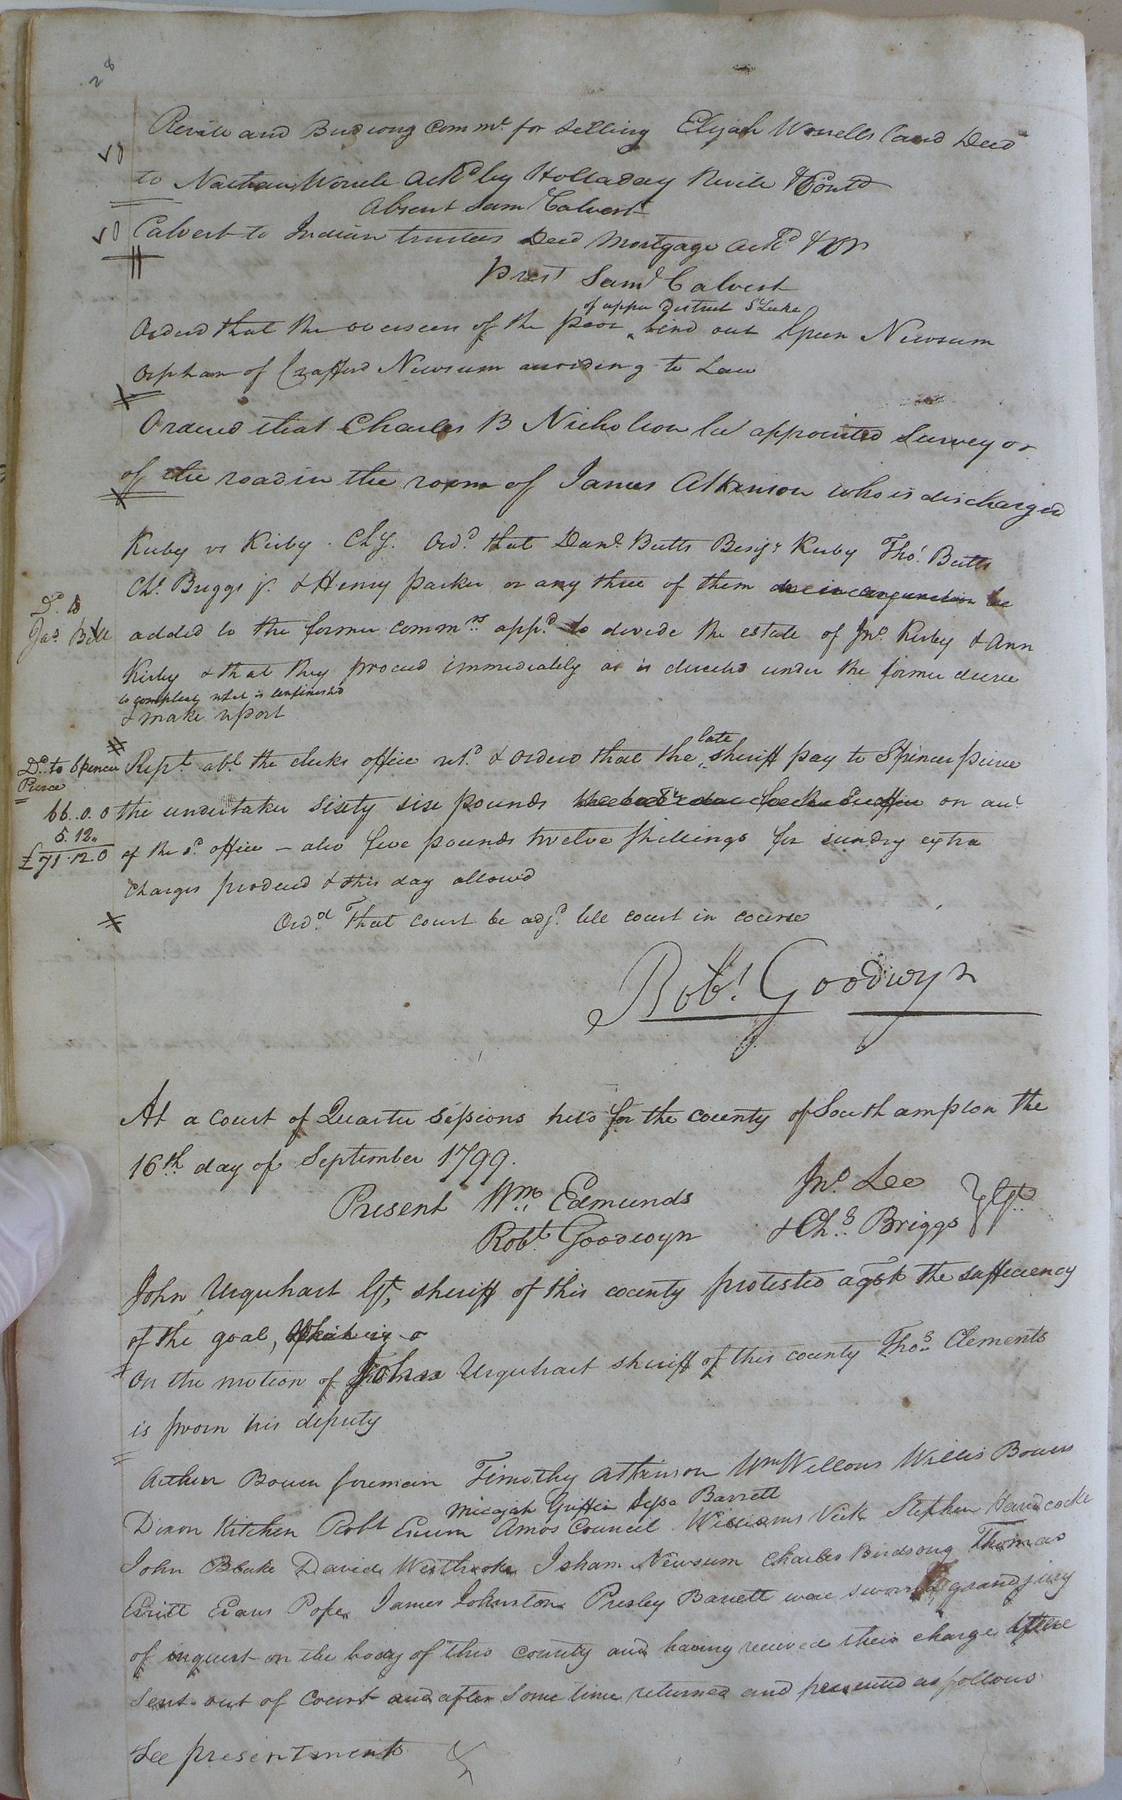 28
Revill and Birdsong Comms. for selling Elijah Worrells land Deed
to Nathan Worrell Ackd by Holladay Revill & Contd
Absent Sam Calvert
Calvert to Indian trustees Deed Mortgage Ackd & OR
Prest Saml Calvert
of upper District St Luke
Ordered that the overseers of the poor bind out Green Newsum
orphan of Crafford Newsum according to Law
Ordered that Charles B Nicholson be appointed Surveyor
of the road in the room of James Atkinson who is discharged
Kirby vs Kirby. Chy. Ordd that Danl Butts Benjn Kirby Thos Butts
Chs. Briggs jr. & Henry Parker or any three of them be
Do.
Jas. Bell
added to the former commrs appd to divide the estate of Jno. Kirby & Ann
Kirby & that they proceed immediately as is directed under the former decree
to compleat what is unfinished
& make report
late
Do. to Spencer
Pierce
Rept. abt. the clerks office retd & ordered that the sheriff pay to Spencer pierce
66..0.0
the undertaker sixty six pounds on act
5.12..
£71.12.0
of the sd. office – also five pounds twelve shillings for sundry extra
charges produced & this day allowed
Ordd That court be adjd. till court in course
Robt. Goodwyn
At a court of Quarter sessions held for the county of Southampton the
16th day of September 1799.
Present Wm. Edmunds Jno Lee
Robt. Goodwyn & Chs. Briggs } Gt.
John Urquhart Gt, sheriff of this county protested agst the sufficiency
of the goal,
On the motion of John Urquhart sheriff of this county Thos Clements
is sworn his deputy
Arthur Bowen foreman Timothy Atkinson Wm Wellons Willis Bowers
Micajah Griffin Jesse Barrett
Dixon Kitchen Robt Amos Council Williams Vick Stephen Handcocke
John Blake David Westbrooke Isham Newsum Charles Birdsong Thomas
Evritt Evans Pope James Johnston Presley Barrett were sworn a grand jury
of inquest on the body of this county and having received their charge were
sent out of Court and after some time returned and presented as follows
See presentments